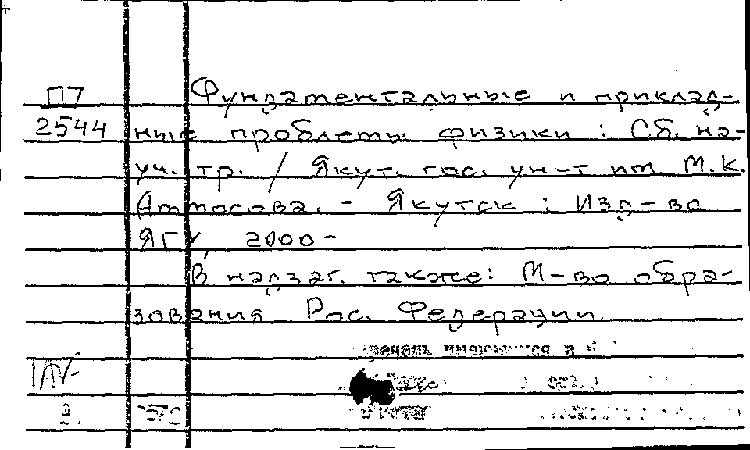 П7 Фундаментальные и приклад-
2544 ные проблемы физики : Сб. на-
уч. тр. / Якут. гос. ун-т им. М.К.
Аммосова. - Якутск : Изд-во
ЯГУ, 2000-
В надзаг. также: М-во обра-
зования Рос. Федерации